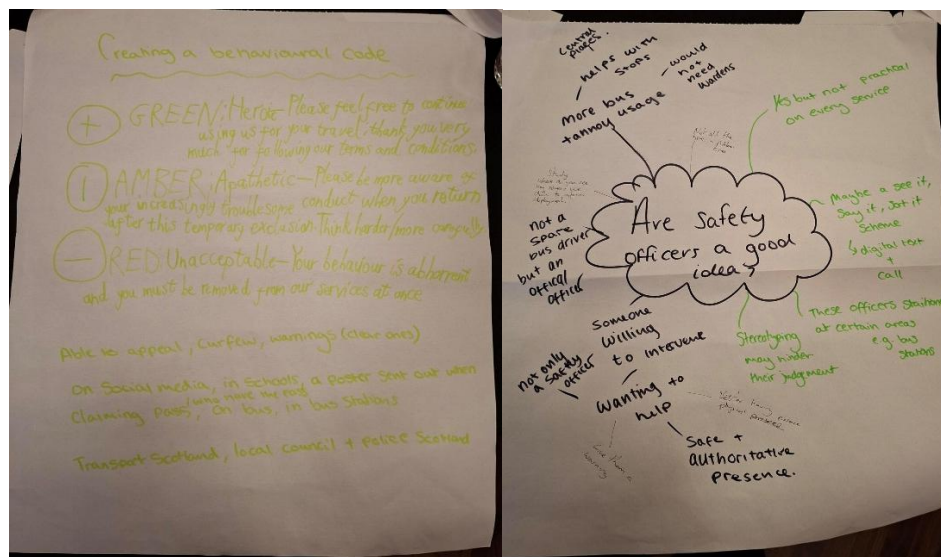 Creating a behavioural code
+ GREEN: Heroic - Please feel free to continue
using us for your travel, thank you very
much for following our terms and conditions.
AMBER: Apathetic - Please be more aware of
your increasingly troublesome conduct when you return
after this temporary exclusion. Think harder/more carefully
- RED: Unacceptable - Your behaviour is abhorrent
and you must be removed from our services at once
Able to appeal, curfew, warnings (clear ones)
on social media, in schools, a poster sent out when
claiming pass, on bus, in bus stations
Transport Scotland, local council + police Scotland
central places.
helps with
stops
would
not
need
wardens
more bus
tannoy usage
Yes but not practical
on every service
Are safety
officers a good
idea?
Maybe a see it,
say it, sort it
scheme
digital text
+
call
not a
spare
bus driver
but an
official
officer
These officers stationed
at certain areas
e.g. bus
stations
Stereotyping
may hinder
their judgement
Someone
willing
to intervene
not only
a safety
officer
Wanting to
help
Safe +
authoritative
presence.